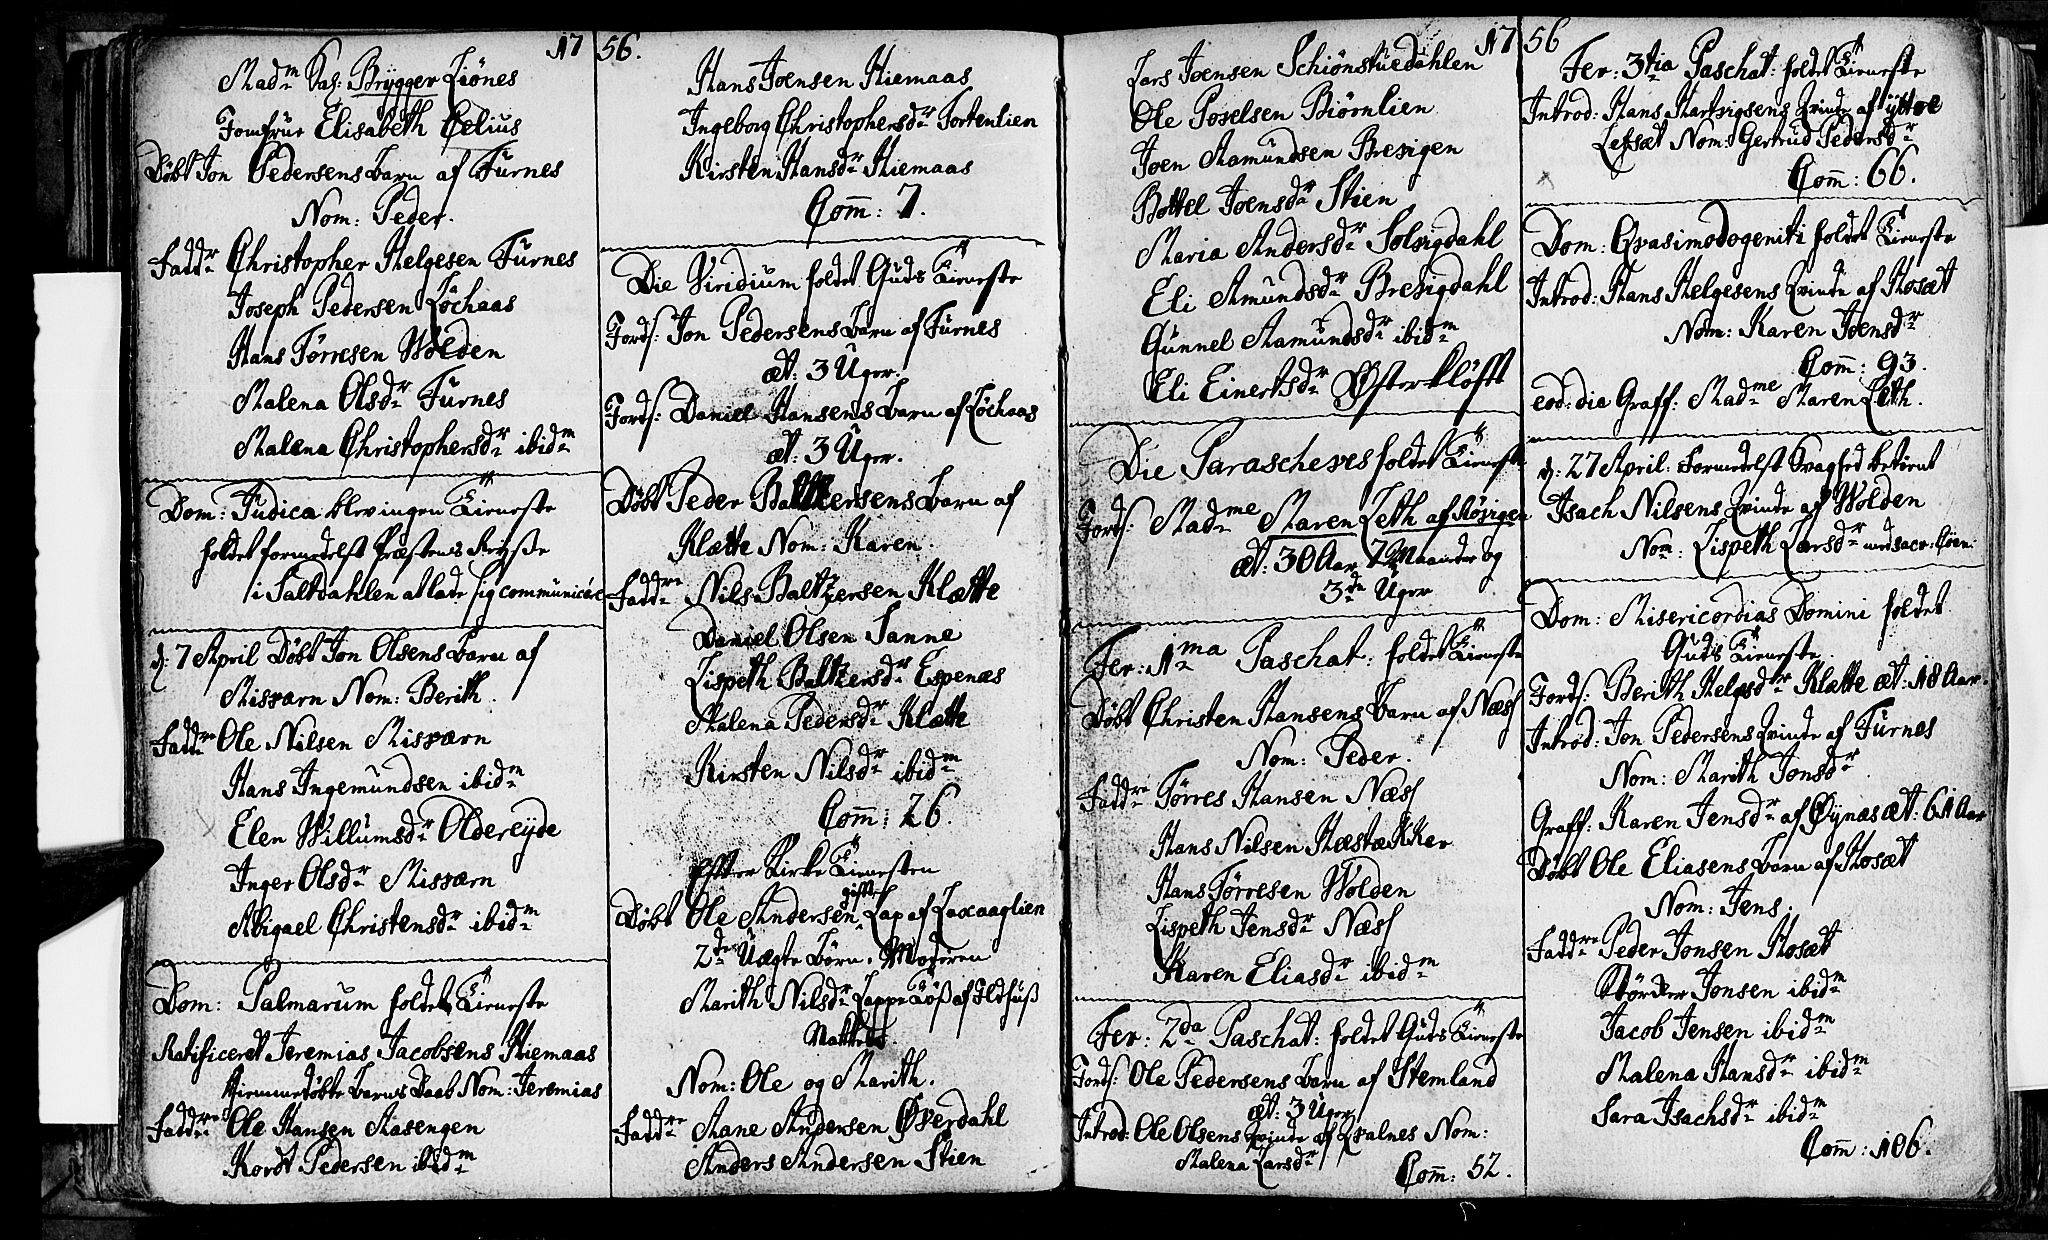 17 56.
Madm Sal: Brygger Liönes
Jomfrue Elisabeth Celius
Döbt Jon Pedersens Barn af Furnes
Nom: Peder.
Faddr Christopher Helgesen Furnes
Joseph Pedersen Löchaas
Hans Törresen Wolden
Malena Olsdr Furnes
Malena Christophersdr ibidm
Dom: Judica blev ingen Tieneste
holdet formedelst Præstens Reyse
i Saltdahlen at lade sig communicere
d: 7 April Döbt Jon Olsens Barn af
Misværn Nom: Berith.
Faddre Ole Nilsen Misværn
Hans Ingemundsen ibidm
Elen Willumsdr Oldereyde
Inger Olsdr Misværn
Abigael Christensdr ibidm
Dom: Palmarum holdet Tieneste
Ratificeret Jeremias Jacobsens Hiemaas
Hiemmedöbte Barns Daab Nom: Jeremias
Faddre Ole Hansen Aasengen
Kordt Pedersen ibidm
Hans Joensen Hiemaas
Ingeborg Christophersdr Tortenlien
Kirsten Hansdr Hiemaas
Com̄: 7.
Die Viridium holdet Guds Tieneste
Jords: Jon Pedersens Barn af Furnes
æt: 3 Uger.
Jords: Daniel Hansens Barn af Löchaas
æt: 3 Uger.
Döbt Peder Baltzersens Barn af
Klætte Nom: Karen.
Faddre Nils Baltzersen Klætte
Daniel Olsen Sanne
Lispeth Baltzersdr Espenæs
Malena Pedersdr Klætte
Kirsten Nilsdr ibidm
Com̄: 26.
Efter Kirke Tienesten
Döbt Ole Andersen gift Lap af Laxaaglien
2de Uægte Börn. Moderen
Marith Nilsdr Lappe Töß af
Nom: Ole og Marith.
Faddre Aane Andersen Øverdahl
Anders Andersen Stien
17 56
Lars Joensen Schiönstuedahlen
Ole Povelsen Biörnlien
Joen Aamundsen Brevigen
Bottel Joensdr Stien
Maria Andersdr Solvigdahl
Eli Amundsdr Brevigdahl
Gunnel Aamundsdr ibidm
Eli Einertsdr Østerklöft
Die Parascheves holdet Tieneste
Jords: Madme Maren Leth af Røvigen
æt: 30 Aar 7 Maaneder og
3de Uger
Fer: 1ma Paschat: holdet Tieneste
Döbt Christen Hansens Barn af Næss
Nom: Peder.
Faddre Törres Hansen Næss
Hans Nilsen Hæstækker
Hans Törresen Wolden
Lispeth Jensdr Næss
Karen Eliasdr ibidm
Fer: 2da Paschat: holdet Guds Tieneste
Jords: Ole Pedersens Barn af Stemland
æt: 3 Uger
Introd: Ole Olsens Qvinde af Qvalnes Nom:
Malena Larsdr Com̄: 52.
Fer: 3tia Paschat: holdet Tieneste
Introd: Hans Hartvigsens Qvinde af Yttre
Letsæt Nom: Gertrud Pedersdr
Com̄: 66.
Dom: Qvasimodogeniti holdet Tieneste
Introd: Hans Helgesens Qvinde af Hosæt
Nom: Karen Joensdr
Com̄: 93.
eod: die Graff: Madme Maren Leth.
d: 27 April: formedelst Svaghed betient
Isach Nilsens Qvinde af Wolden
Nom: Lispeth Larsdr med sacr: Coen:
Dom: Misericordias Domini holdet
Guds Tieneste.
Jords: Berith Helgsdr Klætte æt: 18 Aar.
Introd: Jon Pedersens Qvinde af Furnes
Nom: Marith Jonsdr
Graff: Karen Jensdr af Øynæs æt: 61 Aar
Döbt Ole Eliasens Barn af Hosæt
Nom: Jens.
Faddre Peder Jonsen Hosæt
Jonsen ibidm
Jacob Jensen ibidm
Malena Hansdr ibidm
Sara Isachsdr ibidm
Com̄: 106.